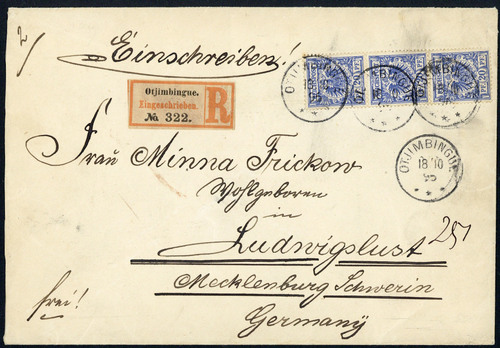 2/
Einschreiben!
Otjimbingue.
Eingeschrieben.
R
№ 322.
OTJIMBINGUE
18/10
95
Frau Minna Frickow
Wohlgeboren
in
Ludwigslust
Mecklenburg Schwerin
Germany
frei!